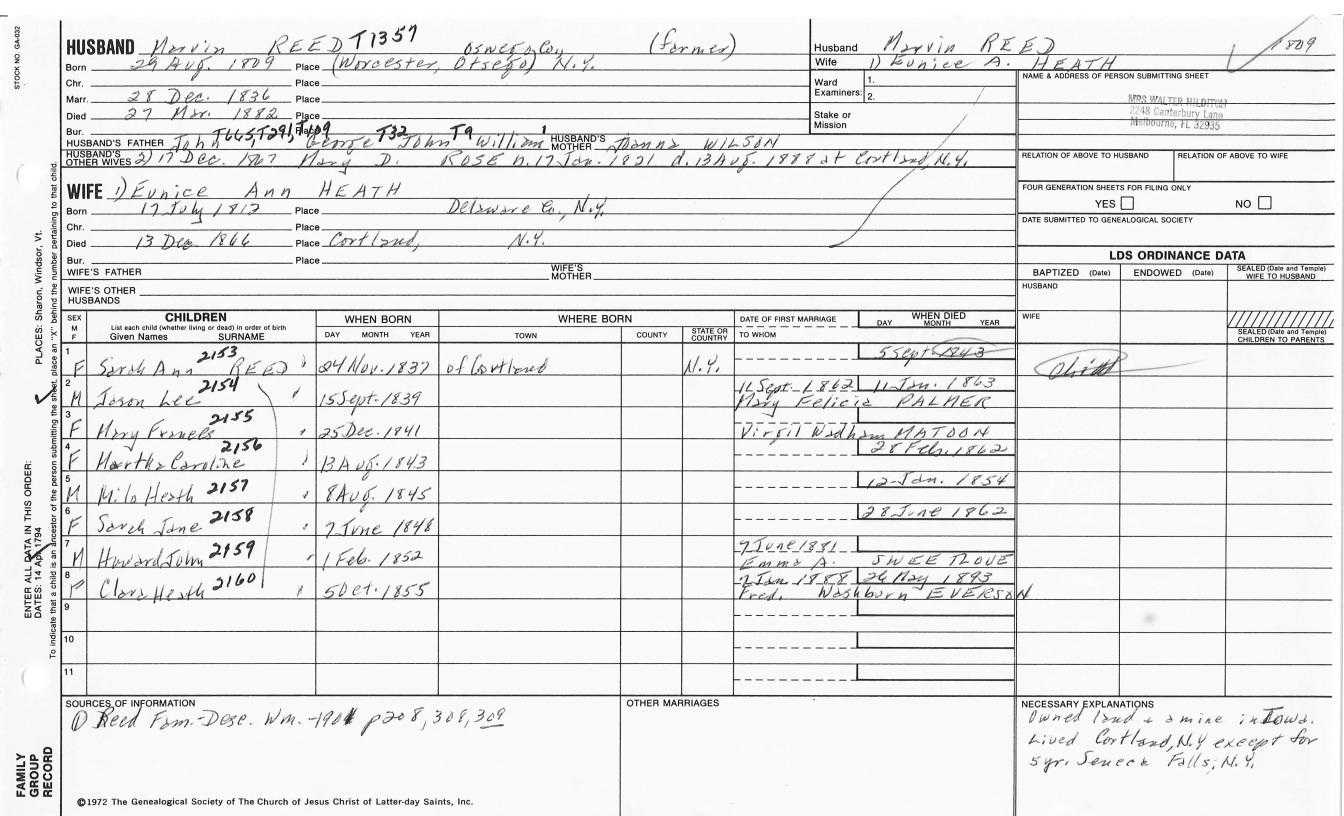 STOCK NO. GA-032
HUSBAND Marvin REED T1357 Oswego Co. (former)
Born 29 Aug. 1809 Place (Worcester, Otsego) N.Y.
Chr. Place
Marr. 28 Dec. 1836 Place
Died 27 Mar. 1882 Place
Bur. Place
HUSBAND'S FATHER John T665, T291, T109 George T32 John T9 William 1 HUSBAND'S MOTHER Joanna WILSON
HUSBAND'S OTHER WIVES 2) 17 Dec. 1867 Mary D. ROSE n. 17 Jan. 1821 d. 13 Aug. 1888 at Cortland, N.Y.
Husband Marvin REED 1809
Wife 1) Eunice A. HEATH
Ward Examiners: 1.
2.
Stake or Mission
NAME & ADDRESS OF PERSON SUBMITTING SHEET
MRS WALTER HILDITCH
2248 Canterbury Lane
Melbourne, FL 32935
RELATION OF ABOVE TO HUSBAND RELATION OF ABOVE TO WIFE
FOUR GENERATION SHEETS FOR FILING ONLY
YES NO
DATE SUBMITTED TO GENEALOGICAL SOCIETY
WIFE 1) Eunice Ann HEATH
Born 17 July 1812 Place Delaware Co., N.Y.
Chr. Place
Died 13 Dec 1866 Place Cortland, N.Y.
Bur. Place
WIFE'S FATHER WIFE'S MOTHER
WIFE'S OTHER HUSBANDS
LDS ORDINANCE DATA
BAPTIZED (Date) ENDOWED (Date) SEALED (Date and Temple) WIFE TO HUSBAND
HUSBAND
WIFE
SEALED (Date and Temple) CHILDREN TO PARENTS
SEX M F CHILDREN List each child (whether living or dead) in order of birth Given Names SURNAME
WHEN BORN DAY MONTH YEAR
WHERE BORN TOWN COUNTY STATE OR COUNTRY
DATE OF FIRST MARRIAGE TO WHOM
WHEN DIED DAY MONTH YEAR
1 F Sarah Ann 2153 REED 24 Nov. 1837 of Cortland N.Y. 5 Sept 1843 Child
2 M Jason Lee 2154 " 15 Sept. 1839 11 Sept. 1862 11 Jan. 1863
Mary Felicia PALMER
3 F Mary Francis 2155 " 25 Dec. 1841
Virgil Wadham MATOON
4 F Martha Caroline 2156 " 13 Aug. 1843 28 Feb. 1862
5 M Milo Heath 2157 " 8 Aug. 1845 12 Jan. 1854
6 F Sarah Jane 2158 7 June 1848 28 June 1862
7 M Howard John 2159 " 1 Feb. 1852 7 June 1881
Emma A. SWEETLOVE
8 F Clara Heath 2160 " 5 Oct. 1855 2 Jan 1888 26 May 1893
Fred. Washburn EVERSON
9
10
11
SOURCES OF INFORMATION
① Reed Fam.-Desc. Wm.-1901 p208, 308, 309
OTHER MARRIAGES
NECESSARY EXPLANATIONS
Owned land & a mine in Iowa.
Lived Cortland, N.Y except for
5 yr. Seneca Falls, N.Y.
©1972 The Genealogical Society of The Church of Jesus Christ of Latter-day Saints, Inc.
FAMILY GROUP RECORD
ENTER ALL DATA IN THIS ORDER:
DATES: 14 Apr 1794
PLACES: Sharon, Windsor, Vt.
To indicate that a child is an ancestor of the person submitting the sheet, place an "X" behind the number pertaining to that child.